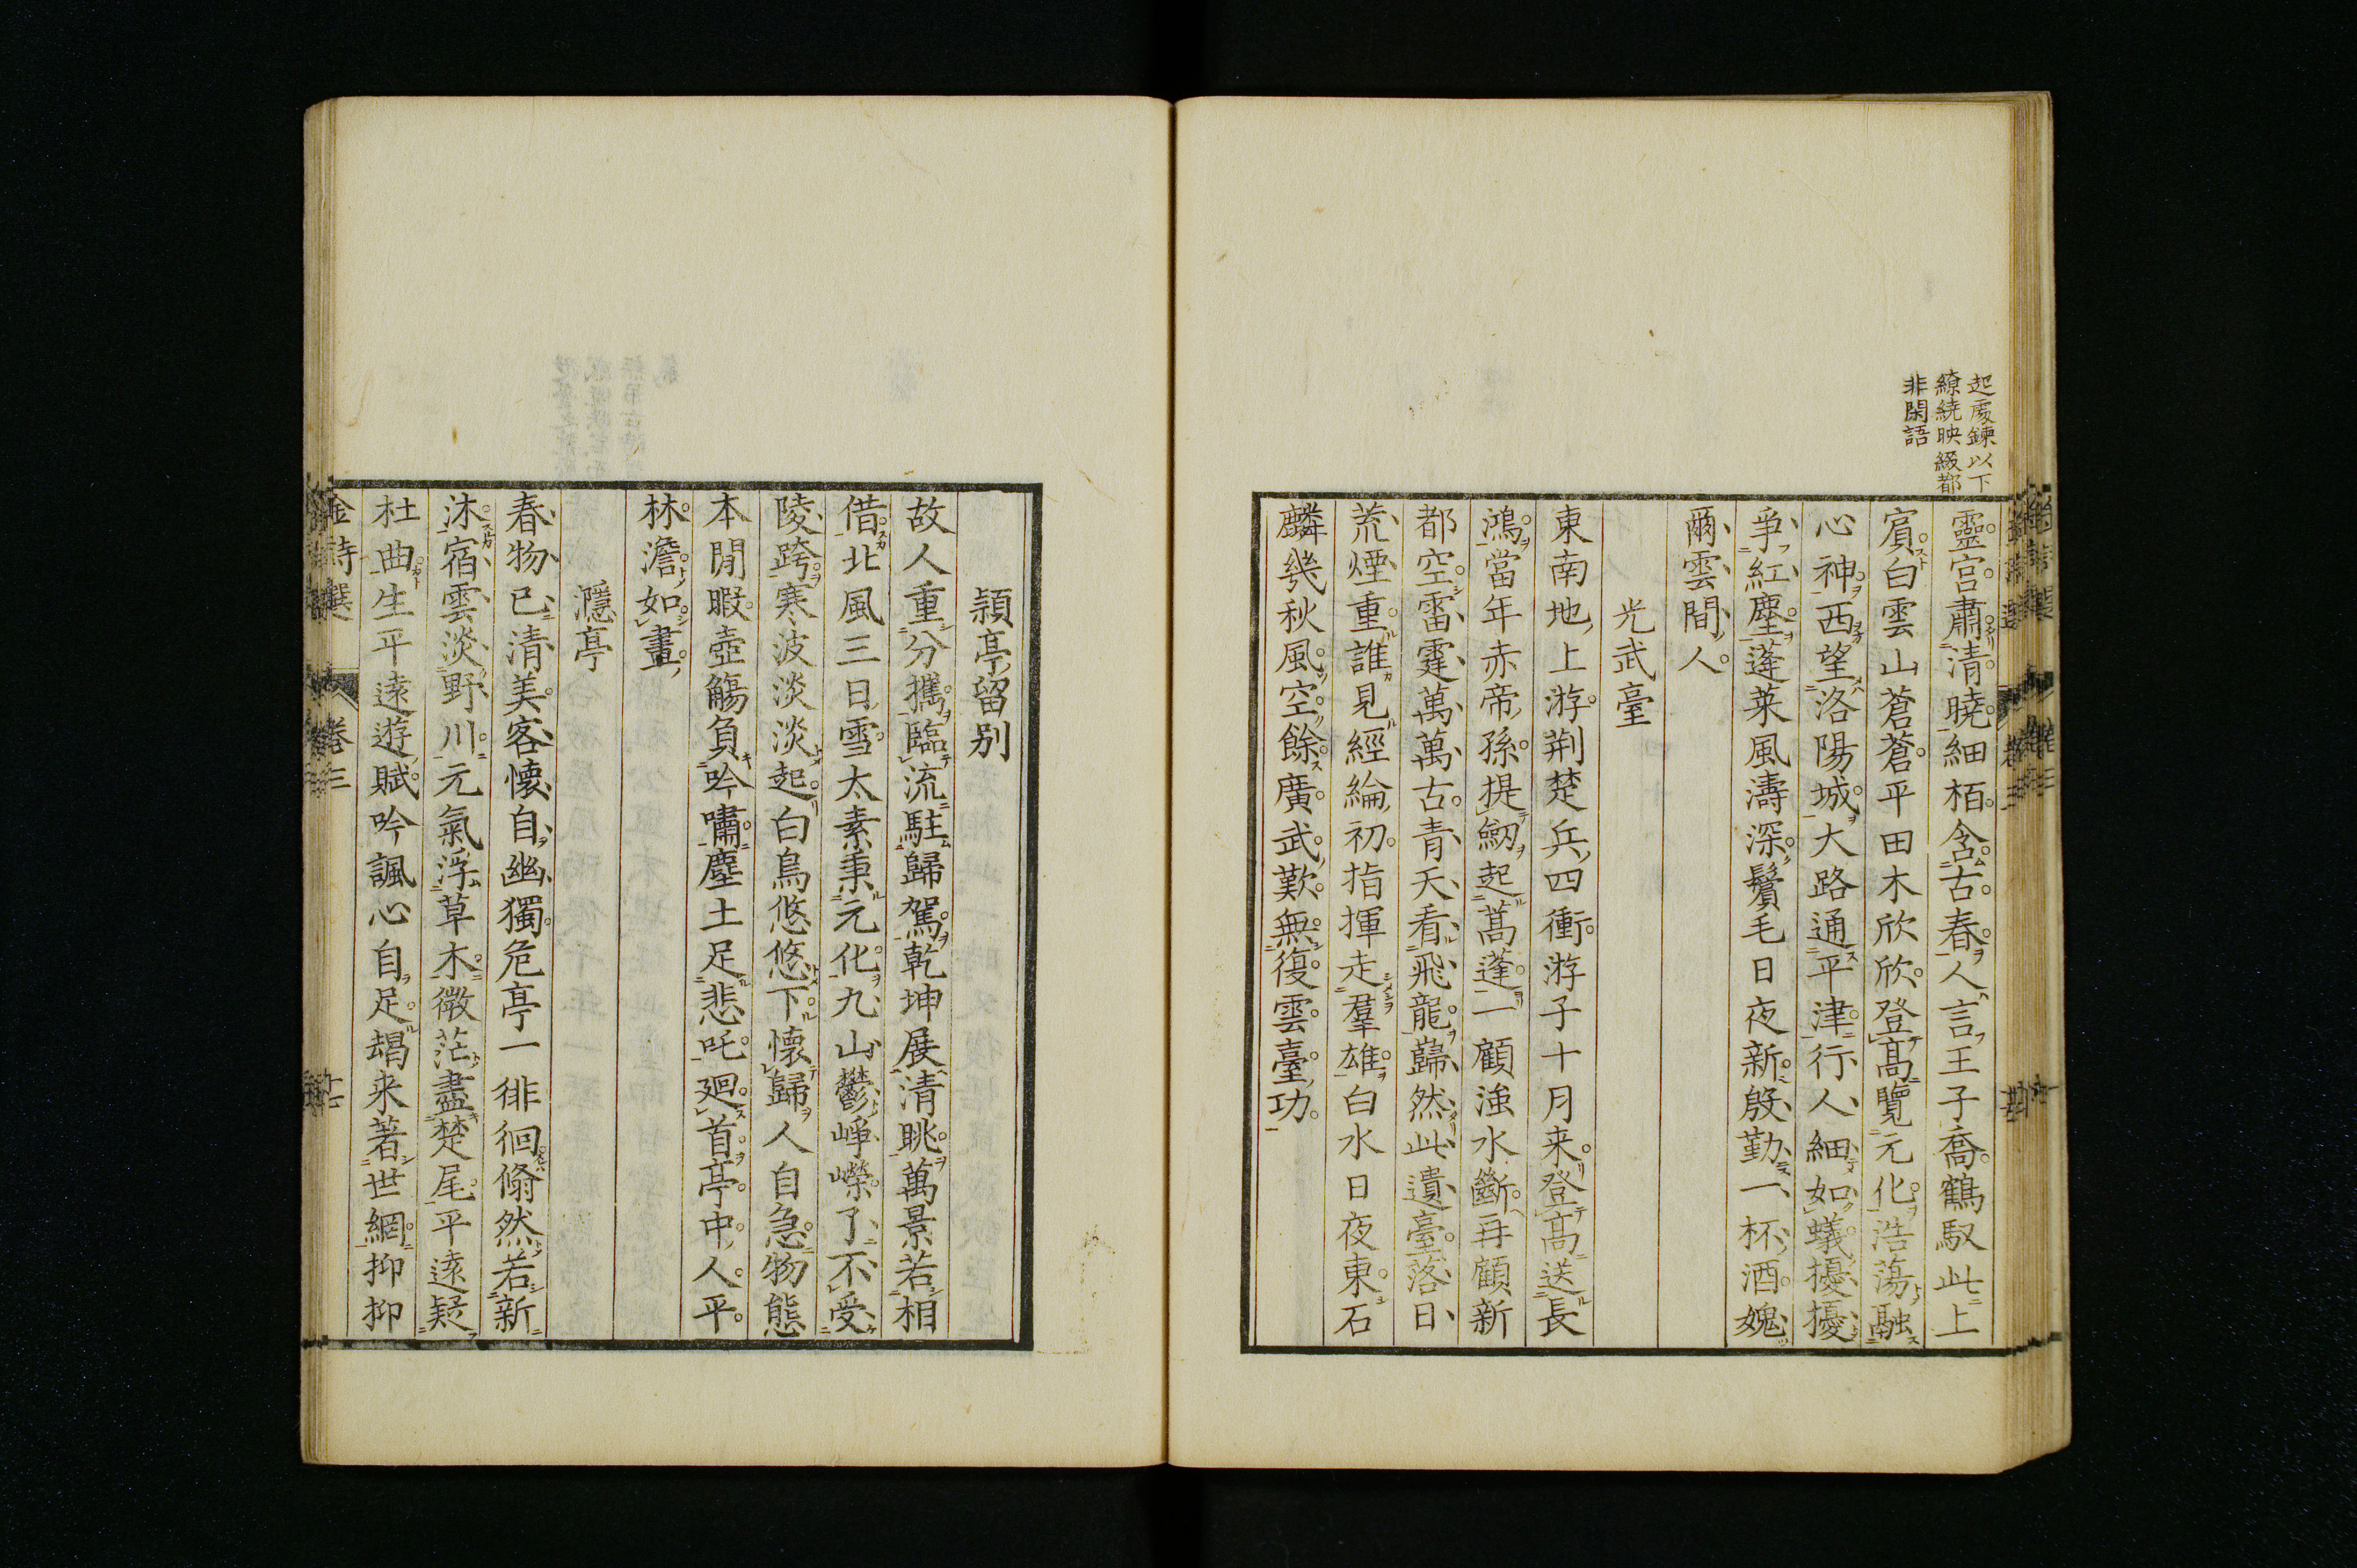 起處鍊以下
繚繞映綴都
非閑語
靈宮肅清曉細栢含古春人言王子喬鶴馭此上
賓白雲山蒼蒼平田木欣欣登高覽元化浩蕩融
心神西望洛陽城大路通平津行人細如蟻擾擾
爭紅塵蓬萊風濤深鬢毛日夜新慇勤一杯酒媿
爾雲間人
光武臺
東南地上游荆楚兵四衝游子十月来登高送長
鴻當年赤帝孫提劒起蒿蓬一顧強水斷再顧新
都空雷霆萬萬古青天看飛龍巋然此遺臺落日
荒煙重誰見經綸初指揮走羣雄白水日夜東石
麟幾秋風空餘廣武歎無復雲臺功
頴亭留别
故人重分攜臨流駐歸駕乾坤展清眺萬景若相
借北風三日雪太素秉元化九山鬱崢嶸了不受
陵跨寒波淡淡起白鳥悠悠下懷歸人自急物態
本閒暇壺觴負吟嘯塵土足悲吒廻首亭中人平
林澹如畫
濦亭
春物已清美客懷自幽獨危亭一徘徊翛然若新
沐宿雲淡野川元氣浮草木微茫盡楚尾平遠疑
杜曲生平遠遊賦吟諷心自足朅来著世網抑抑
金詩選 卷三